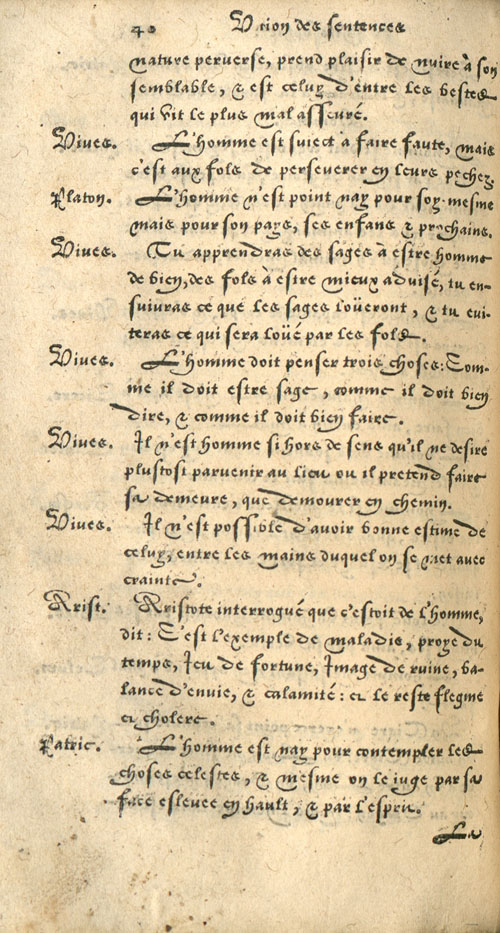 40 Vnion des sentences
nature perverse, prend plaisir de nuire à son
semblable, & est celuy d'entre les bestes
qui vit le plus mal asseuré.
Vives. L'homme est suiect a faire faute, mais
c'est aux fols de perseverer en leurs pechez.
Platon. L'homme n'est point nay pour soy-mesme
mais pour son pays, ses enfans & prochains.
Vives. Tu apprendras des sages à estre homme
de bien, des fols à estre mieux advisé, tu en-
suivras ce que les sages loüeront, & tu evi-
teras ce qui sera loüé par les fols.
Vives. L'homme doit penser trois choses: Com-
me il doit estre sage, comme il doit bien
dire, & comme il doit bien faire.
Vives. Il n'est homme si hors de sens qu'il ne desire
plustost parvenir au lieu ou il pretend faire
sa demeure, que demourer en chemin.
Vives. Il n'est possible d'avoir bonne estime de
celuy, entre les mains duquel on se met avec
crainte.
Arist. Aristote interrogué que c'estoit de l'homme,
dit: C'est l'exemple de maladie, proye du
temps, Jeu de fortune, Image de ruine, ba-
lance d'envie, & calamité: et le reste flegme
et cholere.
Patric. L'homme est nay pour contempler les
choses celestes, & mesme on le iuge par sa
face eslevee en hault, & par l'esprit.
La